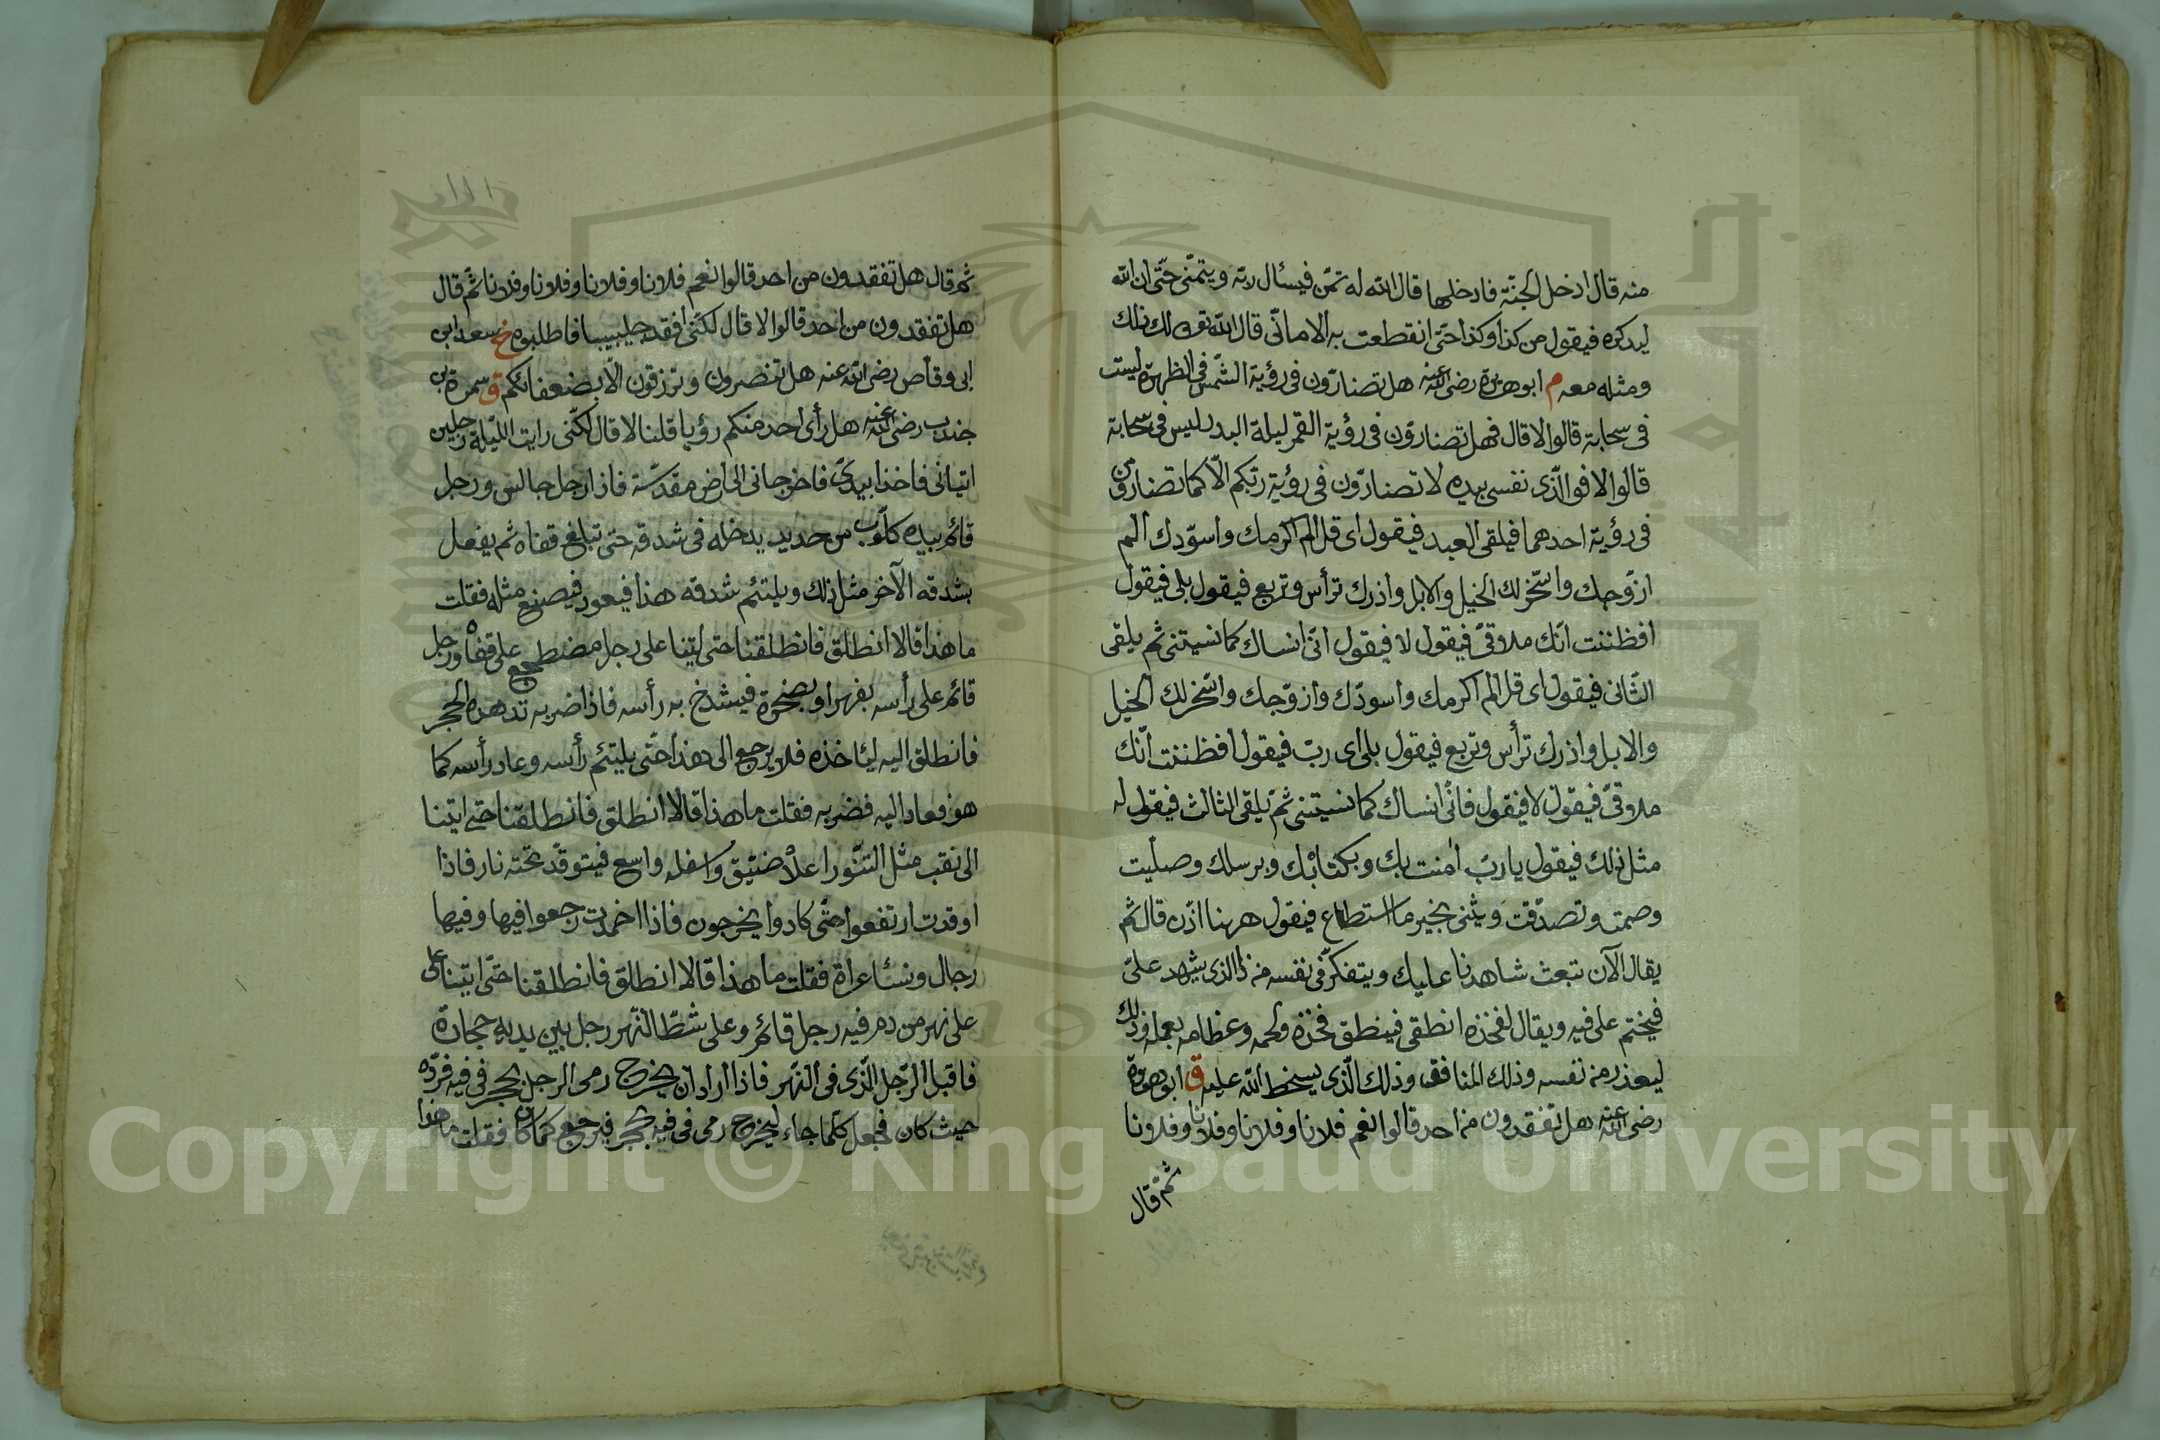 منه قال ادخل الجنّة فادخلها قال الله له تمنّ فيسأل ربّه ويتمنّى حتّى ان الله
ليذكره فيقول من كذا وكذا حتّى انقطعت به الامانّى قال الله تعالى لك ذلك
ومثله معه م ابو هريرة رضى الله عنه هل تضارّون فى رؤية الشّمس فى الظهيرة ليست
فى سحابة قالوا لا قال فهل تضارّون فى رؤية القمر ليلة البدر ليس فى سحابة
قالوا لا فوالّذى نفسى بيده لا تضارّون فى رؤية ربّكم الّا كما تضارّون من
فى رؤية احدهما فيلقى العبد فيقول اى قل الم اكرمك واسوّدك الم
ازوّجك واسّخر لك الخيل والابل واذرك ترأس وتربع فيقول بلى فيقول
افظننت انّك ملاقىّ فيقول لا فيقول انّى انساك كما نسيتنى ثم يلقى
الثّانى فيقول اى قل الم اكرمك واسودّك وازوّجك واسّخر لك الخيل
والابل واذرك ترأس وتربع فيقول بلى اى ربّ فيقول افظننت انّك
ملاقىّ فيقول لا فيقول فانّى انساك كما نسيتنى ثمّ يلقى الثالث فيقول له
مثل ذلك فيقول يا ربّ امنت بك وبكتابك وبرسلك وصلّيت
وصمت وتصدّقت ويثنى بخير ما استطاع فيقول ههنا اذن قال ثم
يقال الآن نبعث شاهدنا عليك ويتفكّر فى نفسه من ذا الذى يشهد علىّ
فيختم على فيه ويقال لفخذه انطقى فينطق فخذه ولحمه وعظامه بعمله وذلك
ليعذر من نفسه وذلك المنافق وذلك الّذى يسخط الله عليه ق ابو هريرة
رضى الله عنه هل تفقدون من احد قالوا نعم فلانا وفلانا وفلانا وفلانا
ثمّ قال
ثم قال هل تفقدون من احد قالوا نعم فلانا وفلانا وفلانا وفلانا ثمّ قال
هل تفقدون من احد قالوا لا قال لكنّى افقد جليبيبا فاطلبوه خ سعد ابى
ابى وقاص رضى الله عنه هل تنصرون وترزقون الّا بضعفائكم ق سمرة بن
جندب رضى الله عنه هل رأى احد منكم رؤيا قلنا لا قال لكنّى رايت اللّيلة رجلين
اتيانى فاخذا بيدىّ فاخرجانى الى ارض مقدّسة فاذا رجل جالس ورجل
قائم بيده كلّوب من حديد يدخله فى شدقه حتى تبلغ قفاه ثم يفعل
بشدقه الآخر مثل ذلك ويلتئم شدقه هذا فيعود فيصنع مثله فقلت
ما هذا قالا انطلق فانطلقنا حتى اتينا على رجل مضطجع على قفاه ورجل
قائم على رأسه بفهر او بصخرة فيشدخ به رأسه فاذا ضربه تدهده الحجر
فانطلق اليه ليئاخذه فلا يرجع الى هذا حتّى يلتئم رأسه وعاد رأسه كما
هو فعاد اليه فضربه فقلت ما هذا قالا انطلق فانطلقنا حتى اتينا
الى نقب مثل التنّور اعلاه ضيّق واسفله واسع فيتوقّد تحته نار فاذا
اوقدت ارتفعوا حتّى كادوا يخرجون فاذا اخمدت رجعوا فيها وفيها
رجال ونسٔا عراة فقلت ما هذا قالا انطلق فانطلقنا حتّى اتينا على
على نهر من دم فيه رجل قائم وعلى شطّ النّهر رجل بين يديه حجارة
فاقبل الرّجل الّذى فى النّهر فاذا اراد ان يخرج رمى الرجل بحجر فى فيه فردّه
حيث كان فجعل كلّما جاء ليخرج رمى فى فيه بحجر فيرجع كما كان فقلت ما هذا
Copyright © King Saud University